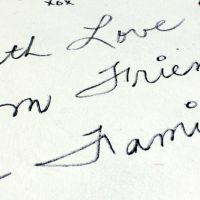 xox
th Love
m Frien
Fami